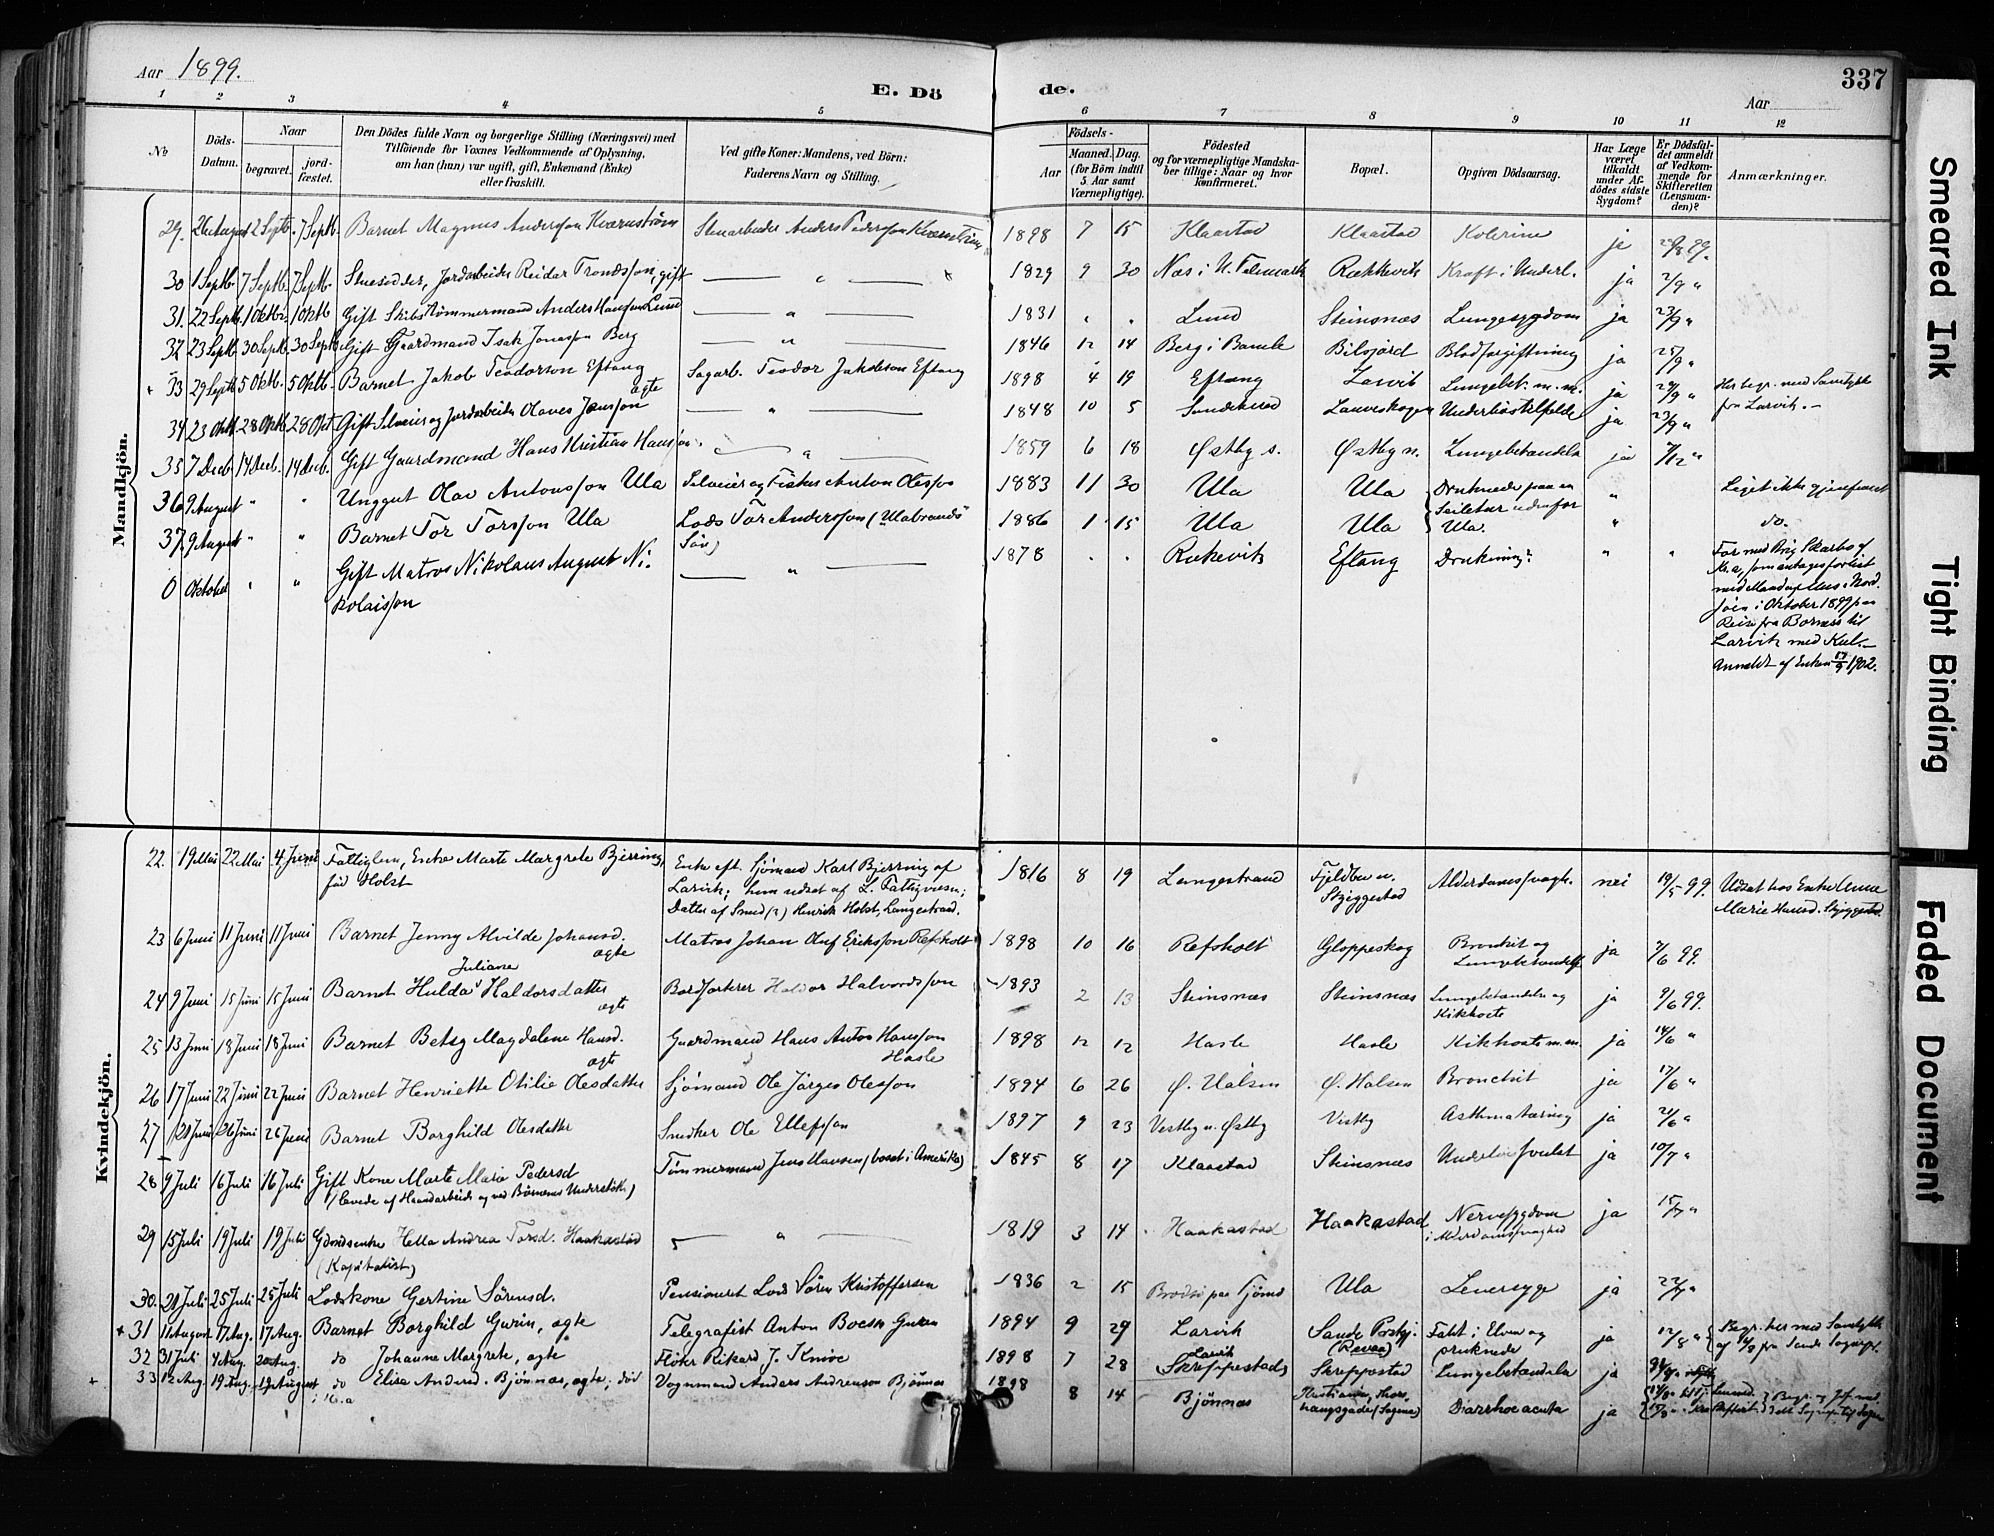 Aar 1899.
E. Dö
de.
337
Aar
1 2 3 4 5 6 7 8 9 10 11 12
No
Döds-Datum.
Naar
begravet.
jord-fæstet.
Den Dödes fulde Navn og borgerlige Stilling (Næringsvei) med
Tilföiende for Voxnes Vedkommende af Oplysning,
om han (hun) var ugift, gift, Enkemand (Enke)
eller fraskilt.
Ved gifte Koner: Mandens, ved Börn:
Faderens Navn og Stilling.
Födsels-
Aar
Maaned. Dag.
(for Börn indtil 5 Aar samt Værnepligtige).
Födested
og for værnepligtige Mandska-
ber tillige: Naar og hvor
konfirmeret.
Bopæl.
Opgiven Dödsaarsag.
Har Læge været tilkaldt under Af-dödes sidste Sygdom?
Er Dödsfal-det anmeldt af Vedkom-mende for Skifteretten (Lensman-den)?
Anmærkninger.
Mandkjön.
29. 26 August 2 Septb. 7 Septb. Barnet Magnus Andersson Kværnström Stenarbeider Anders Pedersson Kværnström 1898 7 15 Klaastad Klaastad Kolerine ja 28/8 99.
30 1 Septb. 7 Septb. 7 Septb. Stuesidder, Jordarbeider Reidar Trondsson, gift — " — 1829 9 30 Næs i N. Telemark Rækkevik Kræft i Underl. ja 2/9 "
31. 22 Septb. 1 Oktbr. 1 Oktb Gift Skibstömmermand Anders Hansson Lund — " — 1831 " " Lund Steinsnæs Lungesygdom ja 23/9 "
32 23 Septb. 30 Septb. 30 Septb. Gift Gaardmand Isak Jonasson Berg — " — 1846 12 14 Berg i Bamle Bilsjord Blodforgiftning ja 25/9 "
+ 33 29 Septb 5 Oktb. 5 Oktb. Barnet Jakob Teodorson Eftang ægte Sagarb. Teodor Jakobson Eftang 1898 4 19 Eftang Larvik Lungebet. m. m. ja 29/9 " Her begr. med Samtykke
fra Larvik. —
34 23 Oktb 28 Oktb. 28 Okt Gift Selveier og Jordarbeider Olaves Jansson — " — 1848 10 5 Sandekrød Lauveskogen Underlivstilfælde ja 23/9 "
35 7 Decb. 14 Decb. 14 Decb. Gift Gaardmand Hans Kristian Hansson. — " — 1859 6 18 Østby s. Østby n. Lungebetændelse ja 7/12 "
36 9 August " " Unggut Olav Antonsson Ula Selveier og Fisker Anton Olesson 1883 11 30 Ula Ula Druknede paa en " Liget ikke gjenfundet
Seiletur udenfor
37. 9 August " " Barnet Tor Torsson Ula Lods Tor Andersson (Ulabrands 1886 1 15 Ula Ula Ula. " do.
Sön)
0 Oktober " " Gift Matros Nikolaus August Ni- — " — 1878 . . Rækevik Eftang Drukning? " "
kolaisson
For med Brig Skarbo af
Kr.a, som antages forlist
med Mand og Mus i Nord-
sjöen i Oktober 1899 paa
Reise fra Borness til
Larvik med Kul. —
Anmeldt af Enken 17/9 1902.
Kvindekjön.
22. 19 Mai 22 Mai 4 Juni Fattiglem, Enke Marte Margrete Bjerring, Enke eft. Sjömand Karl Bjerring af 1816 8 19 Langestrand Fjeldbu u. Alderdomssvagh. nei 19/5 99. Udsat hos Enke Anne
föd Holst Larvik; hun udsat af L. Fattigvæsen; Skjeggestad Marie Hansd. Skjeggestad.
Datter af Smed (?) Henrik Holst, Langestrand.
23 6 Juni 11 Juni 11 Juni Barnet Jenny Alvilde Johansd. ægte Matros Johan Oluf Eriksson Refsholt 1898 10 16 Refsholt Gloppeskog Bronkit og Lungebetændelse ja 7/6 99.
24 9 Juni 15 Juni 15 Juni Barnet Hulda Juliane Haldorsdatter ægte Bordforterer Haldor Halvordsson 1893 2 13 Steinsnæs Steinsnæs Lungebetændelse og Kikhoste ja 9/6 99.
25 13 Juni 18 Juni 18 Juni Barnet Betsy Magdalene Hansd. ægte Gaardmand Hans Anton Hansson Hasle 1898 12 12 Hasle Hasle Kikhoste m. m. ja 14/6 "
26 17 Juni 22 Juni 22 Juni Barnet Henriette Otilie Olesdatter Sjömand Ole Jörges Olesson 1894 6 26 Ø. Halsen Ø. Halsen Bronchit ja 17/6 "
27 21 Juni 26 Juni 26 Juni Barnet Borghild Olesdatter Snedker Ole Ellefsson 1897 9 23 Vestby n. Østby Vestby Asthma tæring ja 21/6 "
28 9 Juli 16 Juli 16 Juli Gift Kone Marte Marie Pedersd Tömmermand Jens Hansen (bosat i Amerika) 1845 8 17 Klaastad Steinsnæs Underlivssvulst ja 10/7 "
(levede af Haandarbeide og ved Børnenes Understöt.)
29 15 Juli 19 Juli 19 Juli Gaardsenke Hella Andrea Torsd. Haakastad — " — 1819 3 14 Haakastad Haakastad Nervesygdom ja 15/7 "
(Kapitalist) i Alderdomssvaghed
30. 21 Juli 25 Juli 25 Juli Lodskone Gertine Sörensd. Pensioneret Lods Sören Kristoffersen 1836 2 15 Brodsö paa Tjömö Ula Leversyge ja 22/7 "
+ 31 11 August 17 Aug. 17 Aug. Barnet Borghild Gurin, ægte Telegrafist Anton Boesen Gurin 1894 9 29 Larvik Sande Prstgj. (Revaa) Faldt i Elven og druknede ja 12/8 " Begr. her med Samtykke
af 14/8 fra Sande Sognepr.
32 31 Juli 4 Aug. 20 Aug. do Johanne Margrete, ægte Flöter Rikard J. Knive 1898 7 28 Larvik Skreppestad Skreppestad Lungebetændelse ja
+ 33 12 Aug. 19 Aug. 19 August do Elisa Andersd. Bjönnes, ægte; död i Kr.a Vognmand Anders Andreasson Bjönnes 1898 8 14 Bjönnes Kristiania, (Sogn) Diarrhoe acuta ja
Smeared Ink
Tight Binding
Faded Document